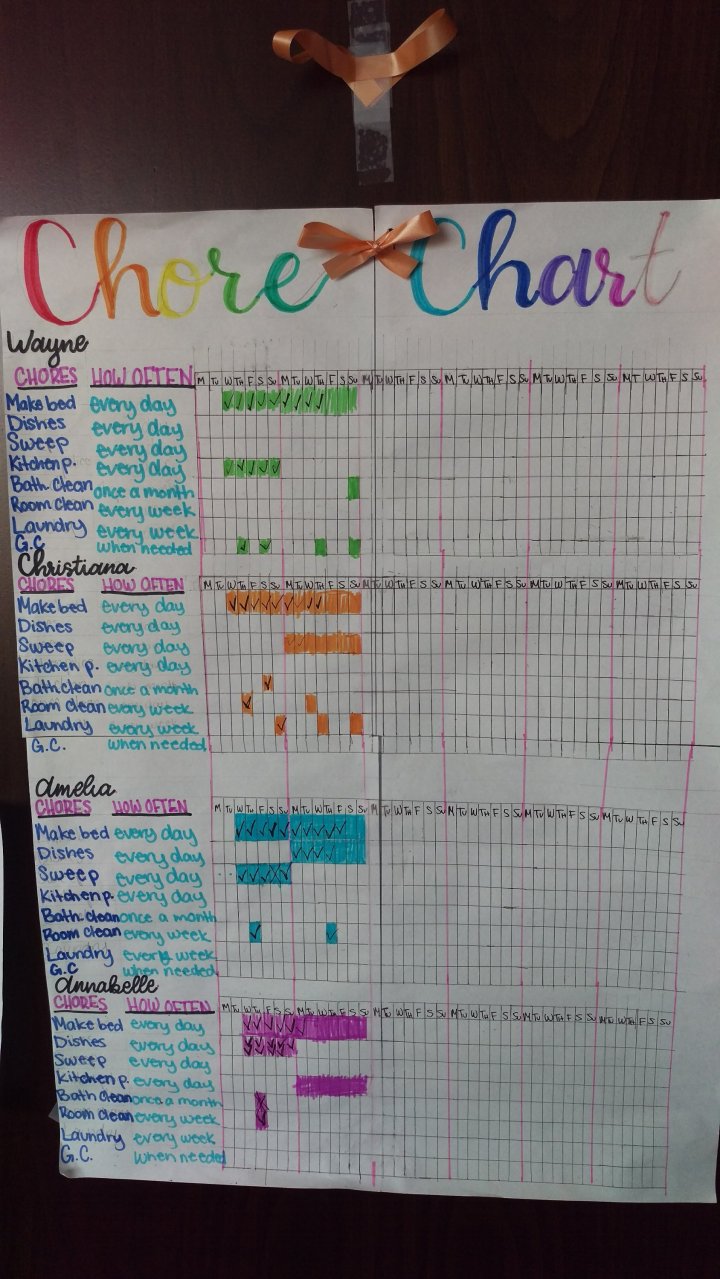 Chore Chart
Wayne
CHORES HOW OFTEN M Tu W Th F S Su M Tu W Th F S Su M Tu W Th F S Su M Tu W Th F S Su M Tu W Th F S Su M T W Th F S Su
Make bed every day
Dishes every day
Sweep every day
Kitchen p. every day
Bath clean once a month
Room clean every week
Laundry every week
G.C. when needed
Christiana
CHORES HOW OFTEN M Tu W Th F S Su M Tu W Th F S Su M Tu W Th F S Su M Tu W Th F S Su M Tu W Th F S Su M Tu W Th F S Su
Make bed every day
Dishes every day
Sweep every day
Kitchen p. every day
Bath clean once a month
Room clean every week
Laundry every week
G.C. when needed
Amelia
CHORES HOW OFTEN M Tu W Th F S Su M Tu W Th F S Su M Tu W Th F S Su M Tu W Th F S Su M Tu W Th F S Su M Tu W Th F S Su
Make bed every day
Dishes every day
Sweep every day
Kitchen p. every day
Bath clean once a month
Room clean every week
Laundry every week
G.C when needed
Annabelle
CHORES HOW OFTEN M Tu W Th F S Su M Tu W Th F S Su M Tu W Th F S Su M Tu W Th F S Su M Tu W Th F S Su M Tu W Th F S Su
Make bed every day
Dishes every day
Sweep every day
Kitchen p. every day
Bath clean once a month
Room clean every week
Laundry every week
G.C. when needed